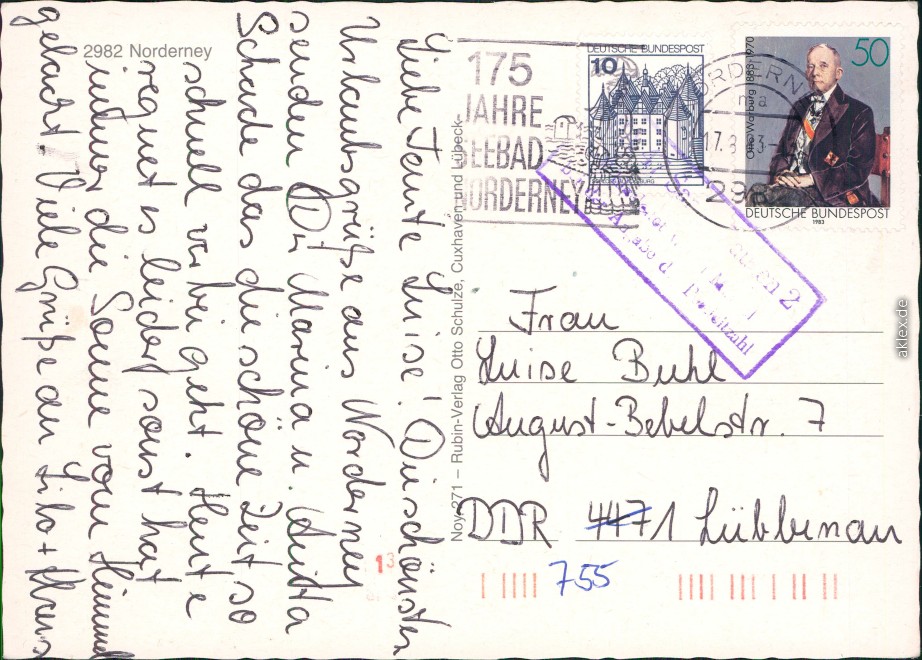 2982 Norderney
Liebe Tante Luise! Die schönsten
Urlaubsgrüße aus Norderney
senden Dir Marina u.
Schade das die schöne Zeit so
schnell vorbei geht. Heute
regnet es leider sonst hat
immer die Sonne vom Himmel
gelacht. Viele Grüße an Lilo + Klaus
Noy 271 – Rubin-Verlag Otto Schulze, Cuxhaven und Lübeck
175
JAHRE
SEEBAD
NORDERNEY
DEUTSCHE BUNDESPOST
10
NORDERN
17.8
298
Otto Warburg 1883-1970
50
DEUTSCHE BUNDESPOST
1983
2
Postleitzahl
Frau
Luise Buhl
August-Bebelstr. 7
DDR 4471 Lübbenau
755
13
aklex.de